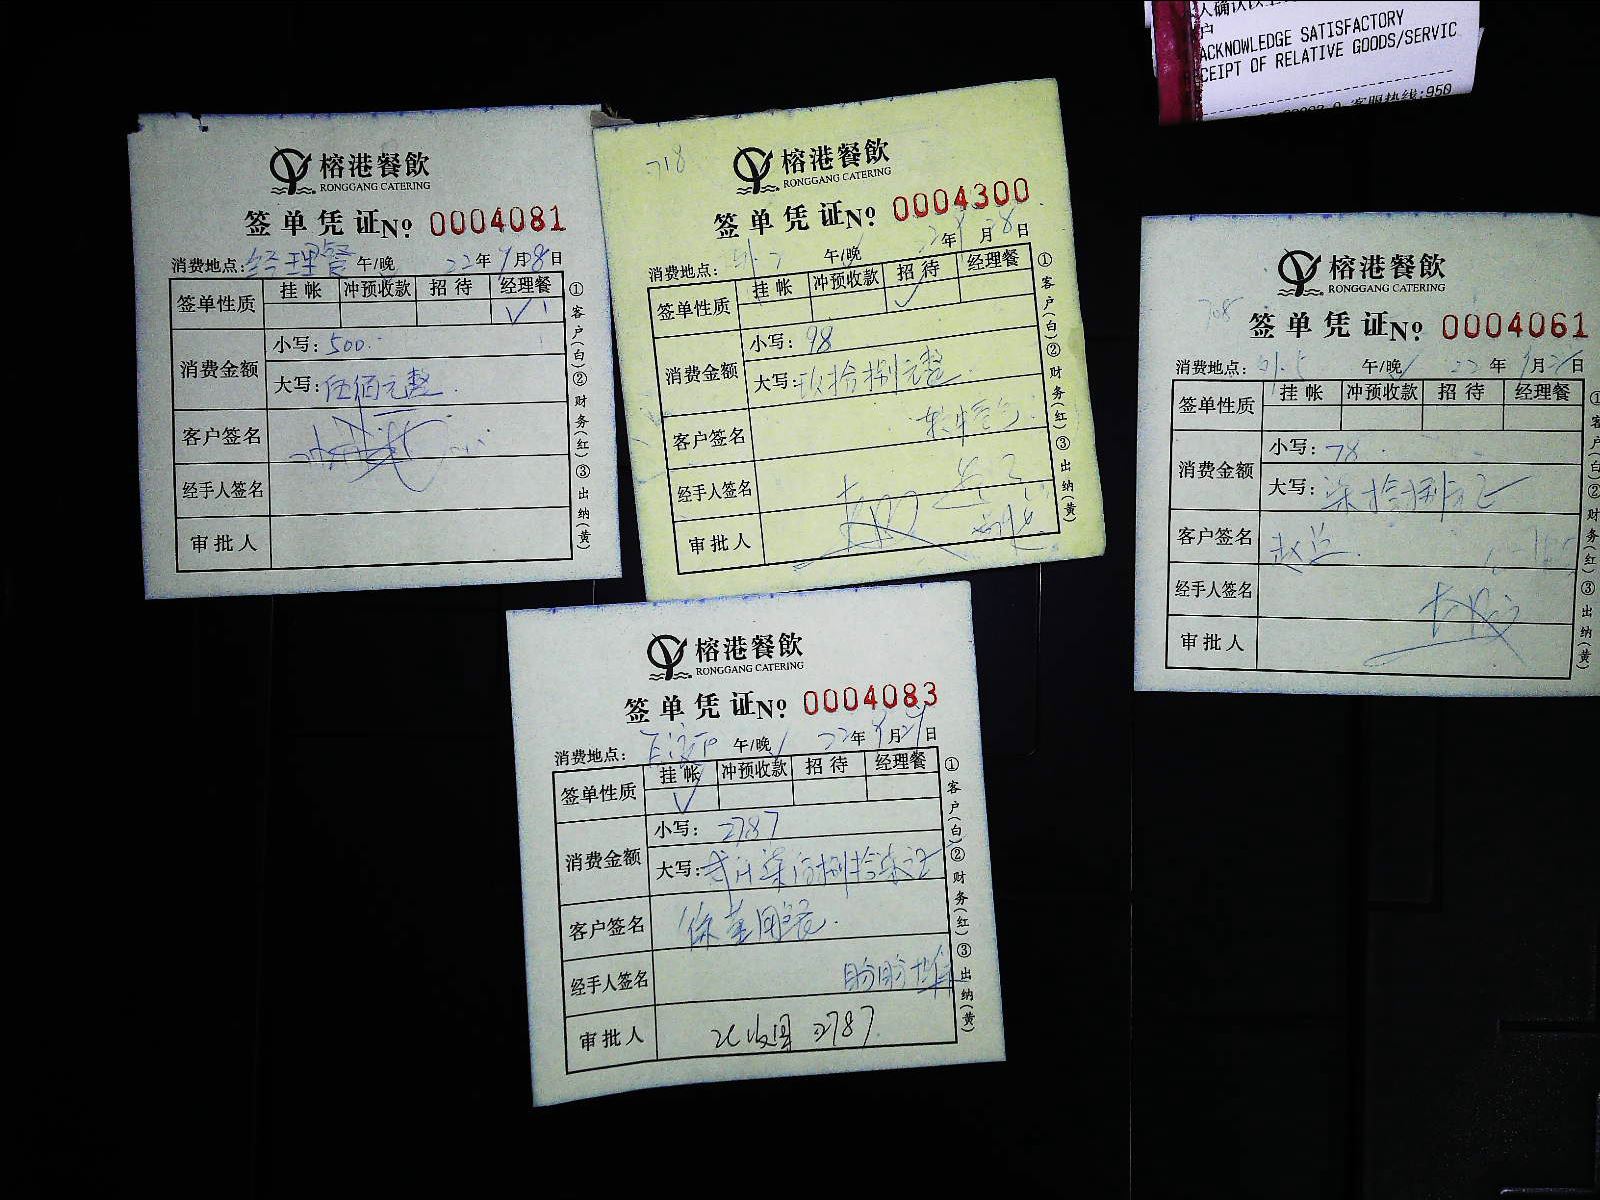 人确认以上
户
ACKNOWLEDGE SATISFACTORY
CEIPT OF RELATIVE GOODS/SERVIC
客服热线:950
榕港餐飲
RONGGANG CATERING
签单凭证No: 0004081
消费地点: 经理餐 午/晚 22年9月8日
签单性质 挂帐 冲预收款 招待 经理餐
✓
消费金额 小写: 500.
大写: 伍佰元整.
客户签名
经手人签名
审批人
①客户(白)②财务(红)③出纳(黄)
718
榕港餐飲
RONGGANG CATERING
签单凭证No: 0004300
消费地点: 午/晚 22年9月28日
签单性质 挂帐 冲预收款 招待 经理餐
✓
消费金额 小写: 98
大写: 玖拾捌元整.
客户签名
经手人签名
审批人
①客户(白)②财务(红)③出纳(黄)
榕港餐飲
RONGGANG CATERING
708 签单凭证No: 0004061
消费地点: 午/晚 22年9月26日
签单性质 挂帐 冲预收款 招待 经理餐
消费金额 小写: 78.
大写: 柒拾捌元正
客户签名
经手人签名
审批人
①客户(白)②财务(红)③出纳(黄)
榕港餐飲
RONGGANG CATERING
签单凭证No: 0004083
消费地点: 午/晚 22年9月29日
签单性质 挂帐 冲预收款 招待 经理餐
✓
消费金额 小写: 2787
大写: 贰仟柒佰捌拾柒元正
客户签名
经手人签名 盼盼
审批人 已收回 2787
①客户(白)②财务(红)③出纳(黄)